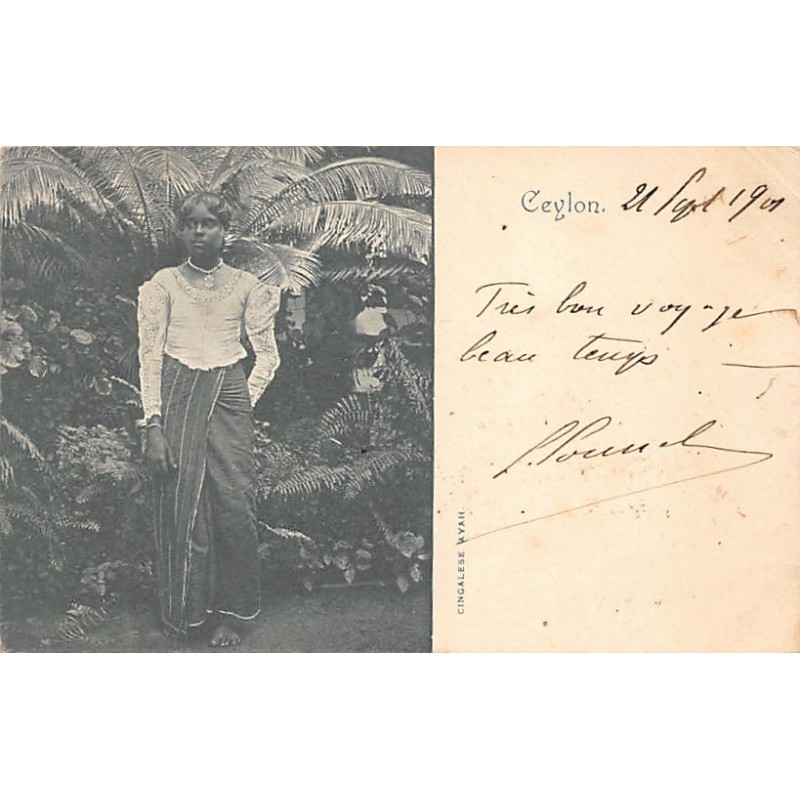 Ceylon. 21 Sept 1901
Très bon voyage
beau temps
CINGALESE AYAH.